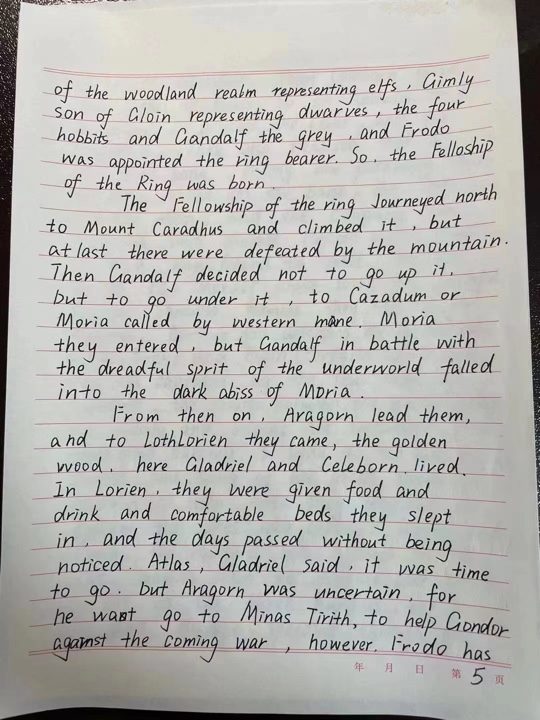 of the woodland realm representing elfs, Gimly
son of Gloin representing dwarves, the four
hobbits and Gandalf the grey, and Frodo
was appointed the ring bearer. So, the Felloship
of the Ring was born.
The Fellowship of the ring Journeyed north
to Mount Caradhus and climbed it, but
at last there were defeated by the mountain.
Then Gandalf decided not to go up it,
but to go under it, to Cazadum or
Moria called by western mane. Moria
they entered, but Gandalf in battle with
the dreadful sprit of the underworld falled
into the dark abiss of Moria.
From then on, Aragorn lead them,
and to LothLorien they came, the golden
wood, here Gladriel and Celeborn lived.
In Lorien, they were given food and
drink and comfortable beds they slept
in, and the days passed without being
noticed. Atlas, Gladriel said, it was time
to go. but Aragorn was uncertain, for
he want go to Minas Tirith, to help Gondor
against the coming war, however. Frodo has
年 月 日 第 5 页